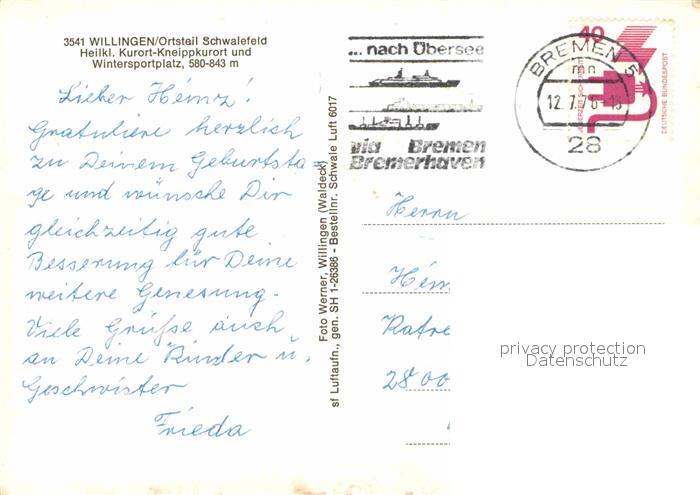 3541 WILLINGEN/Ortsteil Schwalefeld
Heilkl. Kurort-Kneippkurort und
Wintersportplatz, 580-843 m
Lieber Heinz!
Gratuliere herzlich
zu Deinem Geburtsta
ge und wünsche Dir
gleichzeitig gute
Besserung für Deine
weitere Genesung.
Viele Grüße auch
an Deine Kinder u.
Geschwister
Frieda
Foto Werner, Willingen (Waldeck)
sf Luftaufn., gen. SH 1-26386 - Bestellnr. Schwale Luft 6017
... nach Übersee
via Bremen
Bremerhaven
BREMEN 5
mn
12.7.76-18
28
40
JEDERZEIT SICHERHEIT
DEUTSCHE BUNDESPOST
Herrn
Hein
Katre
2800
privacy protection
Datenschutz